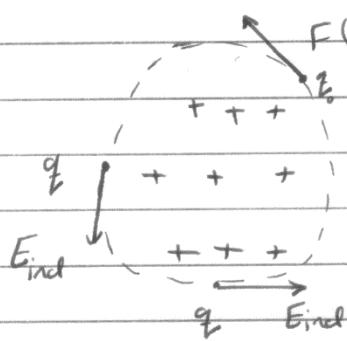 F(
q₀
+ + +
q + + +
E_ind
+ + +
q E_ind